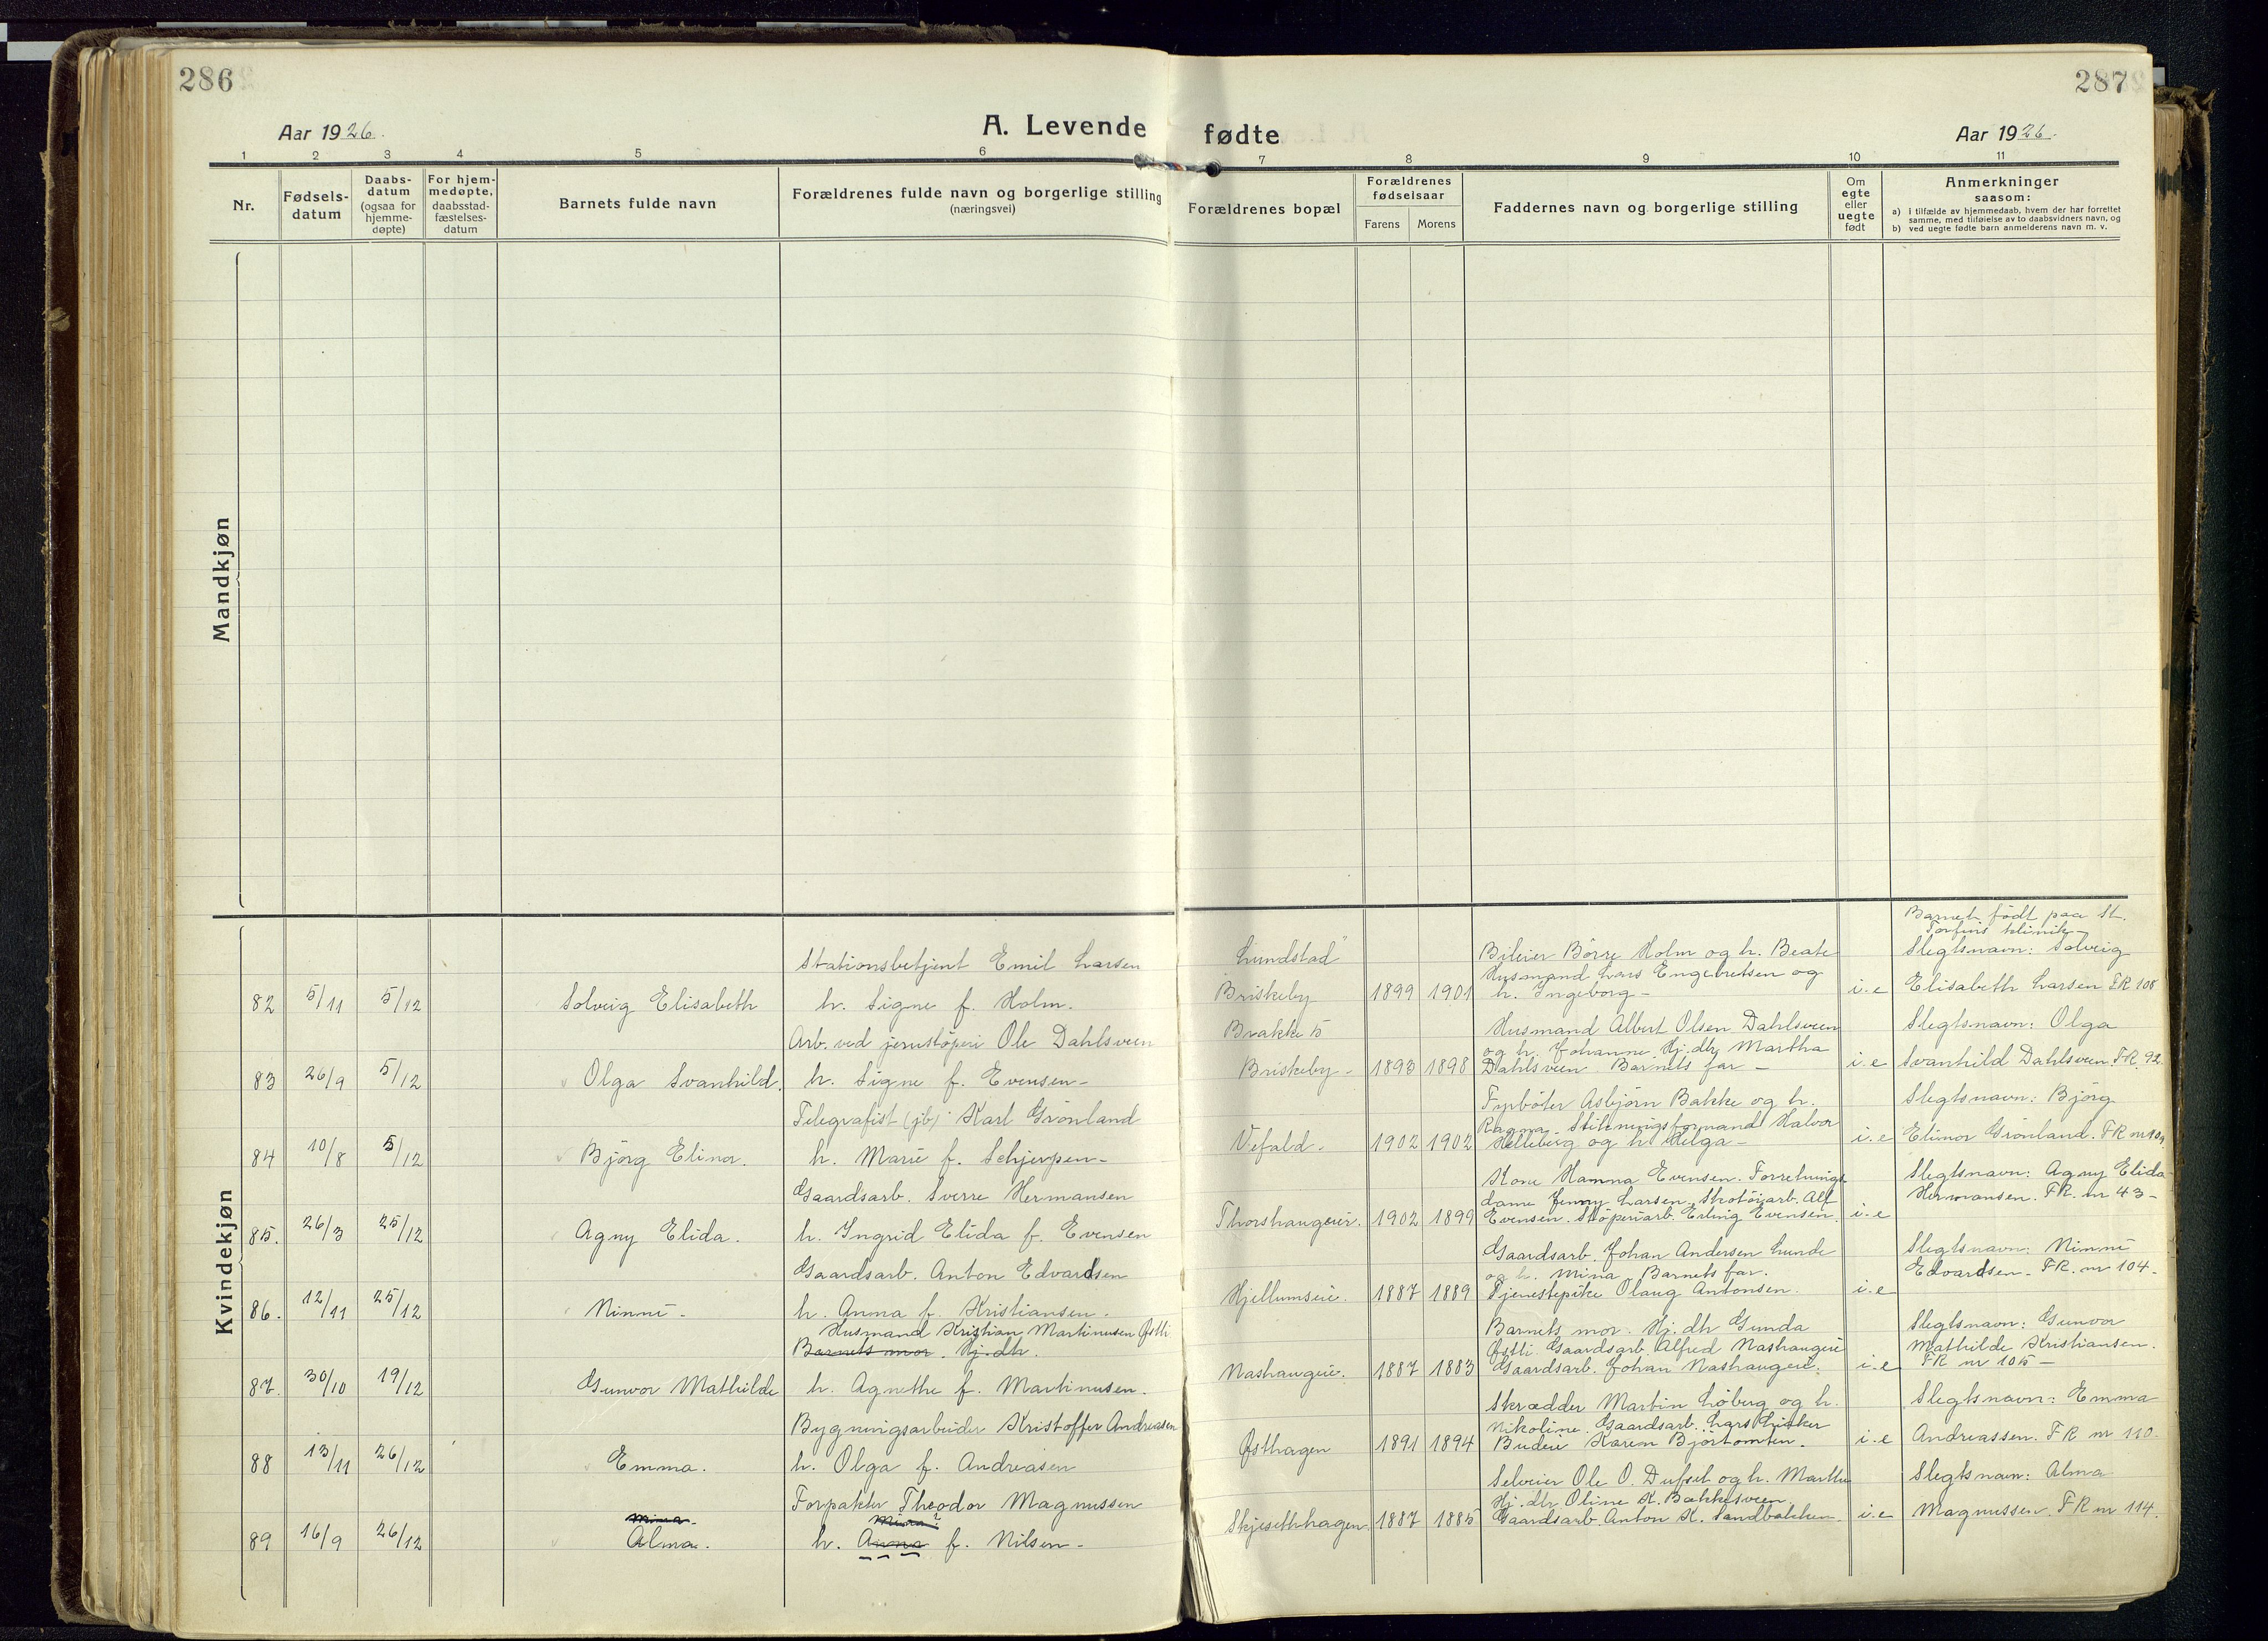 286
287
Aar 1926.
A. Levende
fødte
Aar 1926.
1 2 3 4 5 6 7 8 9 10 11
Nr.
Fødsels-
datum
Daabs-
datum
(ogsaa for
hjemme-
døpte)
For hjem-
medøpte,
daabsstad-
fæstelses-
datum
Barnets fulde navn
Forældrenes fulde navn og borgerlige stilling
(næringsvei)
Forældrenes bopæl
Forældrenes
fødselsaar
Farens Morens
Faddernes navn og borgerlige stilling
Om
egte
eller
uegte
født
Anmerkninger
saasom:
a) i tilfælde av hjemmedaab, hvem der har forrettet
samme, med tilføielse av to daabsvidners navn, og
b) ved uegte fødte barn anmelderens navn m. v.
Mandkjøn
Kvindekjøn
82 5/11 5/12 Solveig Elisabeth
Stationsbetjent Emil Larsen
h. Signe f. Holm.
Lundstad
Briskeby 1899 1901
Bileier Börre Holm og h. Beate
Husmand Lars Engebretsen og
h. Ingeborg-
i.e
Barnet födt paa St.
Torfins klinik-
Slegtsnavn: Solveig
Elisabeth Larsen FR 108
83 26/9 5/12 Olga Svanhild.
Arb. ved jernstöperi Ole Dahlsveen
h. Signe f. Evensen-
Brakke 5
Briskeby- 1893 1898
Husmand Albert Olsen Dahlsveen
og h. Johanne. Hj. dtr Martha
Dahlsveen. Barnets far-
i.e
Slegtsnavn: Olga
Svanhild Dahlsveen. FR. 92
84 10/8 5/12 Björg Elinor.
Telegrafist (jb) Karl Grönland
h. Marie f. Schjerpen-
Vefald. 1902 1902
Fyrböter Asbjörn Bakke og h.
Ragna. Stikningsformand Halvor
Helleberg og h. Helga-
i.e
Slegtsnavn: Björg
Elinor Grönland. FR nr 109
85. 26/3 25/12 Agny Elida.
Gaardsarb. Sverre Hermansen
h. Ingrid Elida f. Evensen
Thorshaugeie. 1902 1899
Kone Hanna Evensen. Forretnings
dame Jenny Larsen. Skotöiarb. Alf
Evensen. Stöperiarb. Erling Evensen.
i.e
Slegtsnavn: Agny Elida
Hermansen. FR. nr 43-
86. 12/11 25/12 Nimmi-
Gaardsarb. Anton Edvardsen
h. Anna f. Kristiansen.
Hjellumseie. 1887 1889
Gaardsarb. Johan Andersen Lunde
og h. Mina Barnets far.
Tjenestepike Olaug Antonsen.
i.e
Slegtsnavn: Nimmi
Edvardsen- FR. nr 104-
87. 30/10 19/12 Gunvor Mathilde
Husmand Kristian Martinusen Østli
Barnets mor. Hj. dtr.
h. Agnethe f. Martinusen.
Nashaugeie. 1887 1883
Barnets mor. Hj. dtr Gunda
Østli. Gaardsarb. Alfred Nashaugeie
Gaardsarb. Johan Nashaugeie.
i.e
Slegtsnavn: Gunvor
Mathilde Kristiansen.
FR nr 105-
88 13/11 26/12 Emma.
Bygningsarbeider Kristoffer Andreasen
h. Olga f. Andreasen
Østhagen 1891 1894
Skrædder Martin Löberg og h.
Nikoline. Gaardsarb. Lars
Budeie Karen Björtomten.
i.e
Slegtsnavn: Emma
Andreassen. FR nr 110
89 16/9 26/12 Mina. Alma.
Forpakter Theodor Magnussen
Mina?
h. Anna f. Nilsen-
Skjesethhagen 1887 1885
Selveier Ole O. Dufset og h. Marthe
Hj. dtr Oline K. Bækkesveen.
Gaardsarb. Anton K. Sandbakken-
i.e
Slegtsnavn: Alma
Magnussen. FR nr 114.